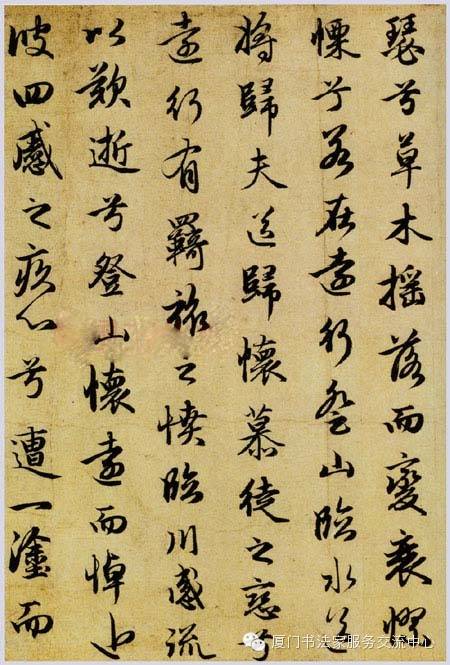 瑟兮草木搖落而變衰憀
慄兮若在遠行登山臨水送
將歸夫送歸懷慕徒之戀兮
遠行有羈旅之憤臨川感流
以歎逝兮登山懷遠而悼近
彼四慼之疚心兮遭一塗而
厦门书法家服务交流中心